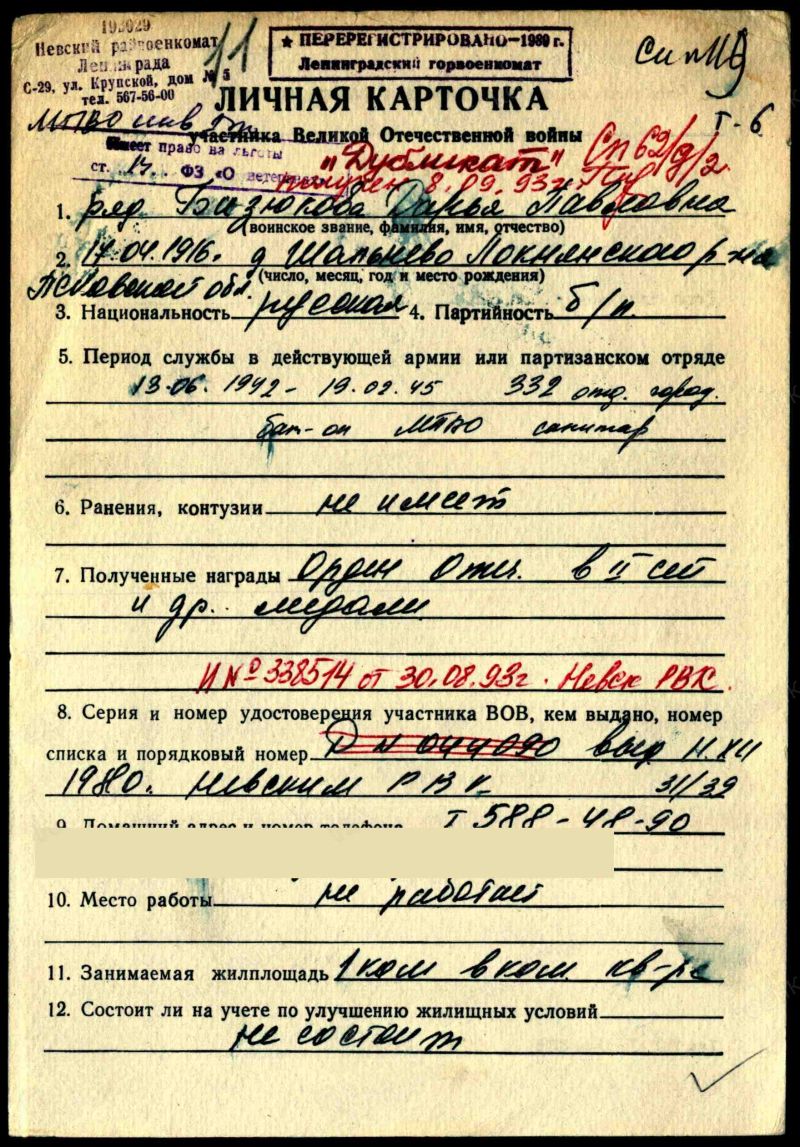 193029
Невский райвоенкомат
Ленинграда
С-29, ул. Крупской, дом № 5
тел. 567-56-00
11
★ ПЕРЕРЕГИСТРИРОВАНО—1989 г.
Ленинградский горвоенкомат
ЛИЧНАЯ КАРТОЧКА
Т-6
МПВО инв
участника Великой Отечественной войны
Имеет право на льготы
ст. 17. ФЗ «О ветеранах»
"Дубликат" Сп 62/д/2
получен 8.09.93г.
1. ряд. Бизюкова Дарья Павловна
(воинское звание, фамилия, имя, отчество)
2. 17.04.1916г. д Шальнево Локнянского р-на
Псковской обл.
(число, месяц, год и место рождения)
3. Национальность русская 4. Партийность б/п.
5. Период службы в действующей армии или партизанском отряде
13.06.1942 - 19.02.45 332 отд. город.
бат-он МПВО санитар
6. Ранения, контузии не имеет
7. Полученные награды Орден Отеч. в II ст
и др. медали
И № 338514 от 30.08.93г. Невск РВК.
8. Серия и номер удостоверения участника ВОВ, кем выдано, номер
списка и порядковый номер Д № 044090 выд
1980г. Невским РВК 31/39
9. Домашний адрес и номер телефона т 588-48-90
10. Место работы не работает
11. Занимаемая жилплощадь 1 ком в ком. кв-ре
12. Состоит ли на учете по улучшению жилищных условий
не состоит